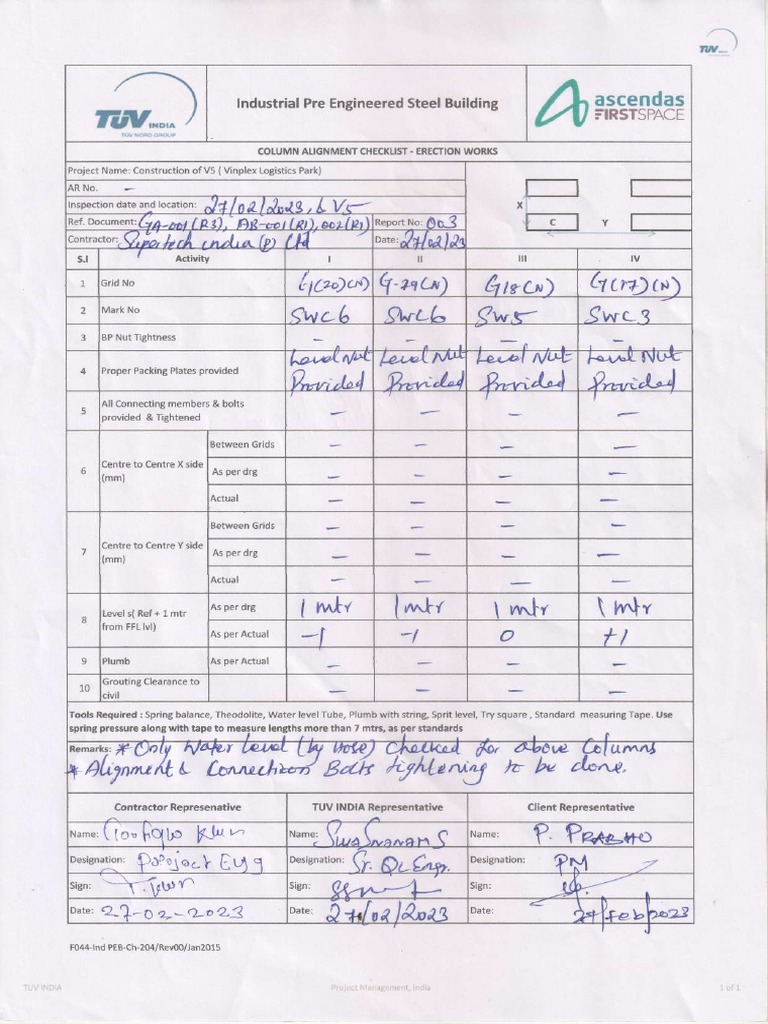 TUV
TUV INDIA
TUV NORD GROUP
Industrial Pre Engineered Steel Building
ascendas
FIRSTSPACE
COLUMN ALIGNMENT CHECKLIST - ERECTION WORKS
Project Name: Construction of V5 ( Vinplex Logistics Park)
AR No. -
Inspection date and location: 27/02/2023, & V5
Ref. Document: GA-001(R3), AB-001(R1), 002(R1) Report No: 003
Contractor: Supertech india (P) Ltd Date: 27/02/23
X C Y
S.I Activity I II III IV
1 Grid No G1(20)(N) G-29(N) G18(N) G(17)(N)
2 Mark No SWC6 SWC6 SW5 SWC3
3 BP Nut Tightness - - - -
4 Proper Packing Plates provided Level Nut Provided Level Nut Provided Level Nut Provided Level Nut Provided
5 All Connecting members & bolts provided & Tightened - - - -
6 Centre to Centre X side (mm) Between Grids - - - -
As per drg - - - -
Actual - - - -
7 Centre to Centre Y side (mm) Between Grids - - - -
As per drg - - - -
Actual - - - -
8 Level s( Ref + 1 mtr from FFL lvl) As per drg 1 mtr 1 mtr 1 mtr 1 mtr
As per Actual -1 -1 0 +1
9 Plumb As per Actual - - - -
10 Grouting Clearance to civil - - - -
Tools Required : Spring balance, Theodolite, Water level Tube, Plumb with string, Sprit level, Try square , Standard measuring Tape. Use
spring pressure along with tape to measure lengths more than 7 mtrs, as per standards
Remarks: * Only Water Level (by hose) Checked for above Columns
* Alignment & Connection Bolts tightening to be done.
Contractor Represenative TUV INDIA Representative Client Representative
Name: Name: Name: P. PRABHU
Designation: Designation: Sr. QC Engr. Designation: PM
Sign: Sign: Sign:
Date: 27-02-2023 Date: 27/02/2023 Date: 27/Feb/2023
F044-Ind PEB-Ch-204/Rev00/Jan2015
TUV INDIA Project Management, India 1 of 1